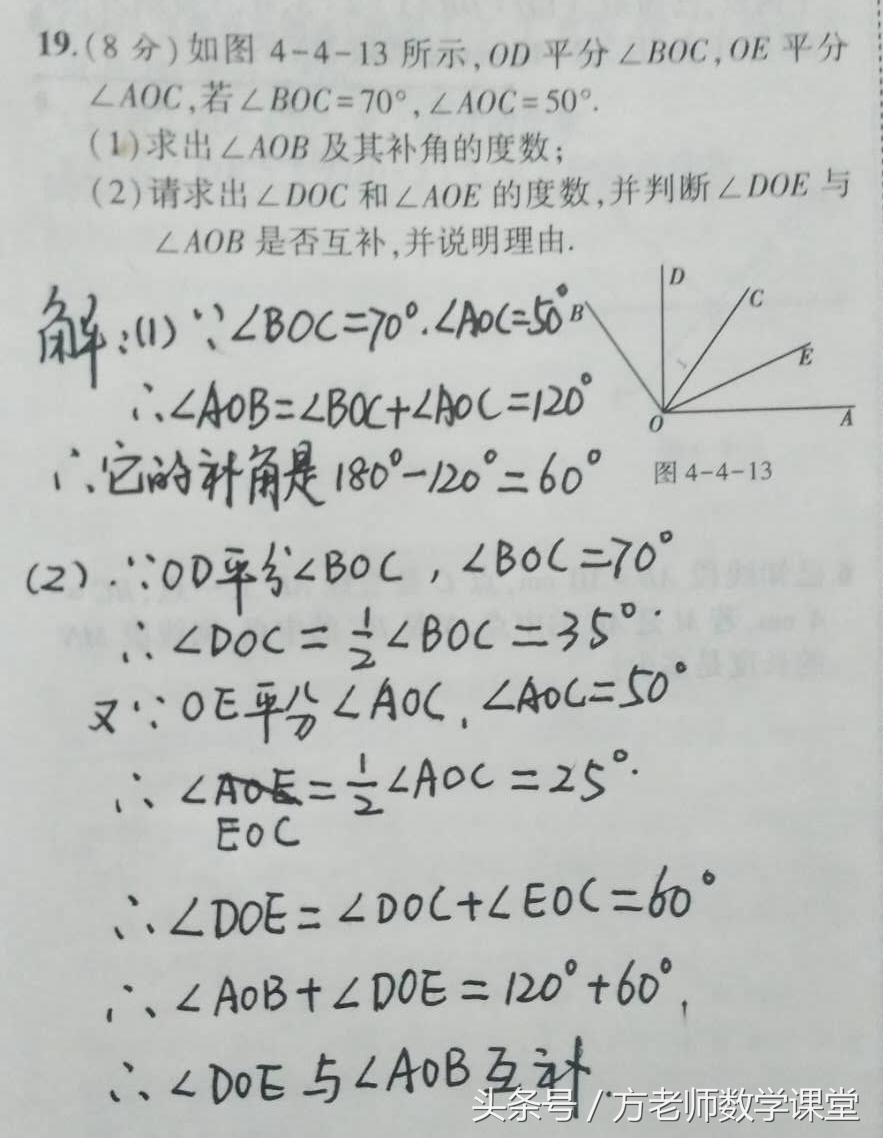 19.(8分)如图4-4-13所示,OD平分∠BOC,OE平分
∠AOC,若∠BOC=70°,∠AOC=50°.
(1)求出∠AOB及其补角的度数;
(2)请求出∠DOC和∠AOE的度数,并判断∠DOE与
∠AOB是否互补,并说明理由.
解:(1)∵∠BOC=70°.∠AOC=50°
∴∠AOB=∠BOC+∠AOC=120°
∴它的补角是180°-120°=60°
B
D
C
E
O
A
图4-4-13
(2)∵OD平分∠BOC,∠BOC=70°
∴∠DOC=1/2∠BOC=35°.
又∵OE平分∠AOC,∠AOC=50°
∴∠AOE=1/2∠AOC=25°.
EOC
∴∠DOE=∠DOC+∠EOC=60°
∴∠AOB+∠DOE=120°+60°,
∴∠DOE与∠AOB互补.
头条号/方老师数学课堂